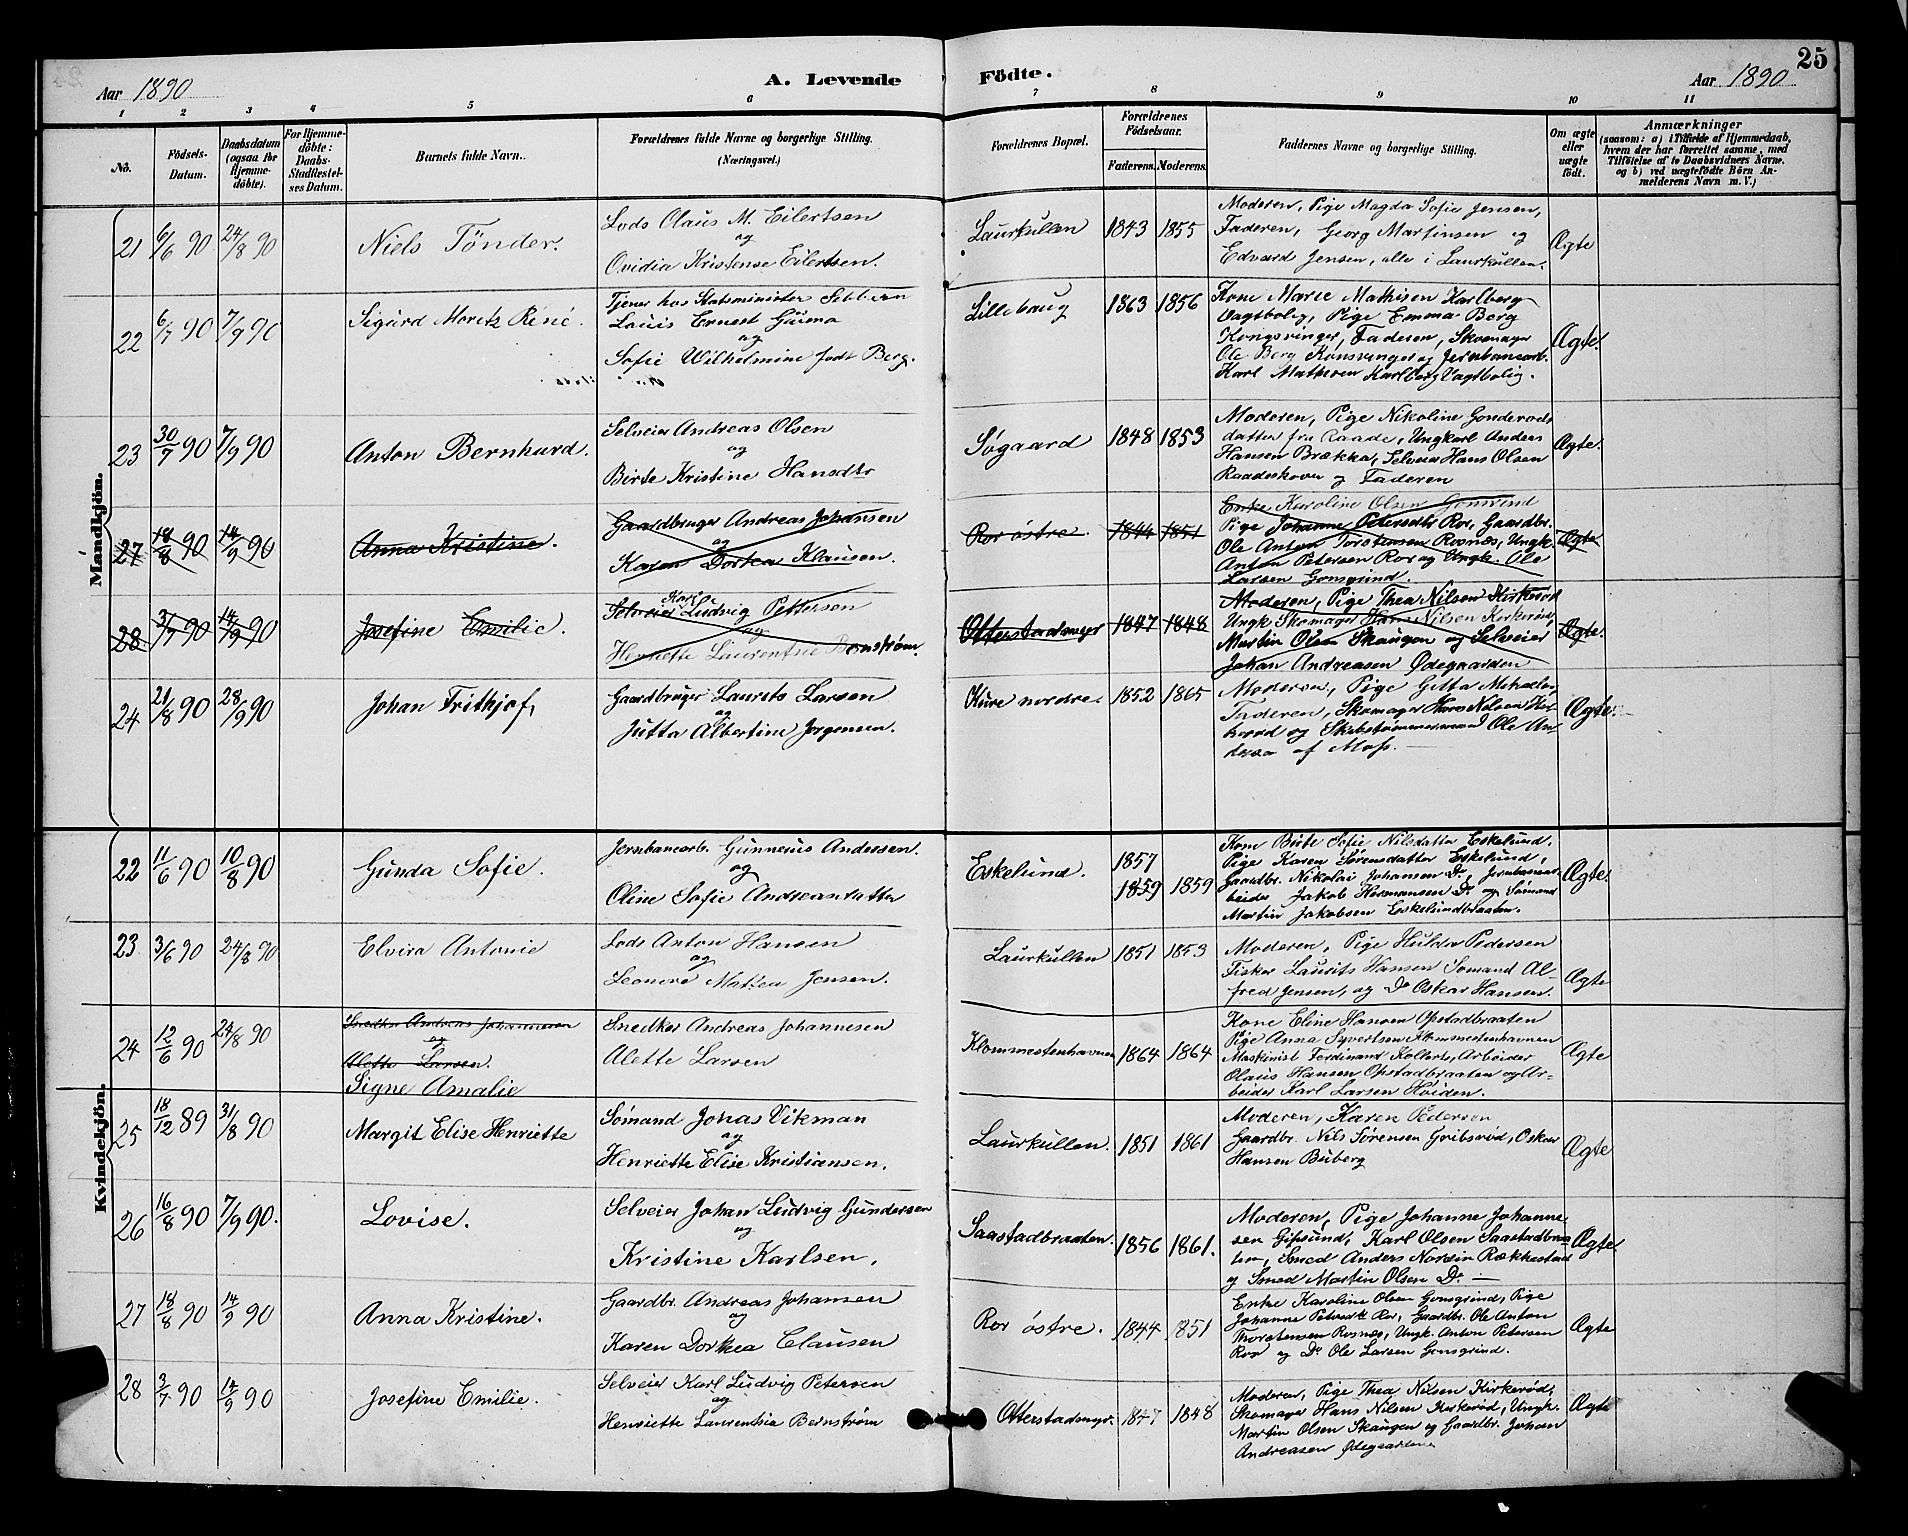 25
Aar 1890
A. Levende
Födte.
Aar 1890
1 2 3 4 5 6 7 8 9 10 11
No.
Födsels-
Datum.
Daabsdatum
(ogsaa for
Hjemme-
döbte).
For Hjemme-
döbte:
Daabs-
Stadfæstel-
ses Datum.
Barnets fulde Navn.
Forældrenes fulde Navne og borgerlige Stilling.
(Næringsvei.)
Forældrenes Bopæl.
Forældrenes
Födselsaar.
Faderens. Moderens.
Faddernes Navne og borgerlige Stilling.
Om ægte
eller
uægte
født.
Anmærkninger
(saasom: a) i Tilfælde af Hjemmedaab,
hvem der har forrettet samme, med
Tilföielse af to Daabsvidners Navne,
og b) ved uægtefödte Börn An-
melderens Navn m. V.)
Mandkjön.
21 6/6 90 24/8 90 Niels Tönder.
Lods Olaus M. Eilertsen
og
Ovidia Kristense Eilertsen.
Laurkullen 1843 1855
Moderen, Pige Magda Sofie Jensen,
Faderen, Georg Martinsen og
Edvard Jensen, alle i Laurkullen.
Ægte
22 6/7 90 7/9 90 Sigurd Moretz René.
Tjener hos Statsminister Sibbern
Louis Ernest
og
Sofie Wilhelmine født Berg.
Lillebaug 1863 1856
Kone Marie Mathisen Karlberg
Vagtbolig, Pige Emma Berg
Kongsvinger, Faderen, Skomager
Ole Berg Konsvinger og Jernbanearb.
Karl Mathesen Karlberg Vagtbolig.
Ægte.
23 30/7 90 7/9 90 Anton Bernhard.
Selveier Andreas Olsen
og
Birte Kristine Hansdtr
Søgaard 1848 1853
Moderen, Pige Nikoline Gonderods
datter fra Raade, Ungkarl Anders
Hansen Brække, Selveier Hans Olsen
Raadeskoven og Faderen
Ægte.
27 18/8 90 14/9 90 Anna Kristine.
Gaardbruger Andreas Johansen
og
Karen Dorkea Klausen.
Ror østre. 1844 1851
Enke Karoline Olsen Gonsrind
Pige Johanne Petersdtr Ror, Gaardbr.
Ole Anton Torstensen Rosnes, Ungk.
Anton Petersen Ror og Ungk. Ole
Larsen Gonsgrind.
Ægte
28 3/7 90 14/9 90 Josefine Emilie.
Karl
Selveier Ludvig Pettersen
og
Henriette Laurentsie Bernstrøm.
Otterstadmyr 1847 1848
Moderen, Pige Thea Nilsen Kirkerød
Ungk Skomager Hans Nilsen Kirkerød,
Martin Olsen Skaugen og Selveier
Johan Andreasen Ødegaarden
Ægte.
24 21/8 90 28/9 90 Johan Frithjof,
Gaardbruger Laurits Larsen
og
Jutta Albertine Jørgensen.
Kure nordre. 1852 1865
Moderen, Pige Gitta
Faderen, Skomager Hans Nilsen
og Skibstømmermand Ole An-
af Moss.
Ægte.
Kvindekjön.
22 11/6 90 10/8 90 Gunda Sofie.
Jernbanearb. Gunnerius Andersen.
og
Oline Sofie Andreasdatter
Eskelund. 1857
1859 1859
Kone Birte Sofie Nilsdatter Eskelund.
Pige Karen Sørensdatter Eskelund,
Gaardbr. Nikolai Johansen Do, Jernbanear-
beider Jakob Hermansen Do og Sømand
Martin Jakobsen Eskelundbraaten.
Ægte.
23. 3/6 90 24/8 90 Elvira Antonie
Lods Anton Hansen
og
Leonore Mattea Jensen.
Laurkullen 1851 1853
Moderen, Pige Hulda Pedersen
Fisker Laurits Hansen Sømand Al-
fred Jensen, og Do Oskar Hansen.
Ægte
24 12/6 90 24/8 90 Snedker Andreas Johannesen
og
Alette Larsen.
Signe Amalie
Snedker Andreas Johannesen
Alette Larsen
Klommestenhavnen 1864 1864
Kone Eline Hansen Opstadbraaten
Pige Anna Syvertsen Klommestenhavnen
Maskinist Ferdinand Kollert, Arbeider
Olaus Hansen Opstadbraaten og Ar-
beider Karl Larsen Høiden.
Ægte
25 18/12 89 31/8 90 Margit Elise Henriette
Sømand Johas Vikman
og
Henriette Elise Kristiansen.
Laurkullen. 1851 1861
Moderen, Karen Pedersen
Gaardbr. Nils Sørensen Gribsrød, Oskar
Hansen Buberg
Ægte
26 16/8 90 7/9 90. Lovise.
Selveier Johan Ludvig Gundersen
og
Kristine Karlsen.
Saastadbraaten. 1856 1861.
Moderen, Pige Johanne Johanne-
sen Gipsund, Karl Olsen Saastadbraa-
ten, Smed Anders Nordin Rækkestad
og Smed Martin Olsen Do. —
Ægte.
27 18/8 90 14/9 90 Anna Kristine.
Gaardbr. Andreas Johansen
og
Karen Dorkea Clausen
Ror østre. 1844 1851
Enke Karoline Olsen Gonsgrind, Pige
Johanne Petersdtr Ror, Gaardbr. Ole Anton
Thorstensen Rosnes, Ungk. Anton Petersen
Ror og Do Ole Larsen Gonsgrind.
Ægte
28 3/7 90 14/9 90 Josefine Emilie.
Selveier Karl Ludvig Petersen
og
Henriette Laurentsia Bernstrøm
Otterstadmyr. 1847 1848
Moderen, Pige Thea Nilsen Kirkerød,
Skomager Hans Nilsen Kirkerød, Ungk.
Martin Olsen Skaugen og Gaardbr. Johan
Andreasen Ødegaarden
Ægte